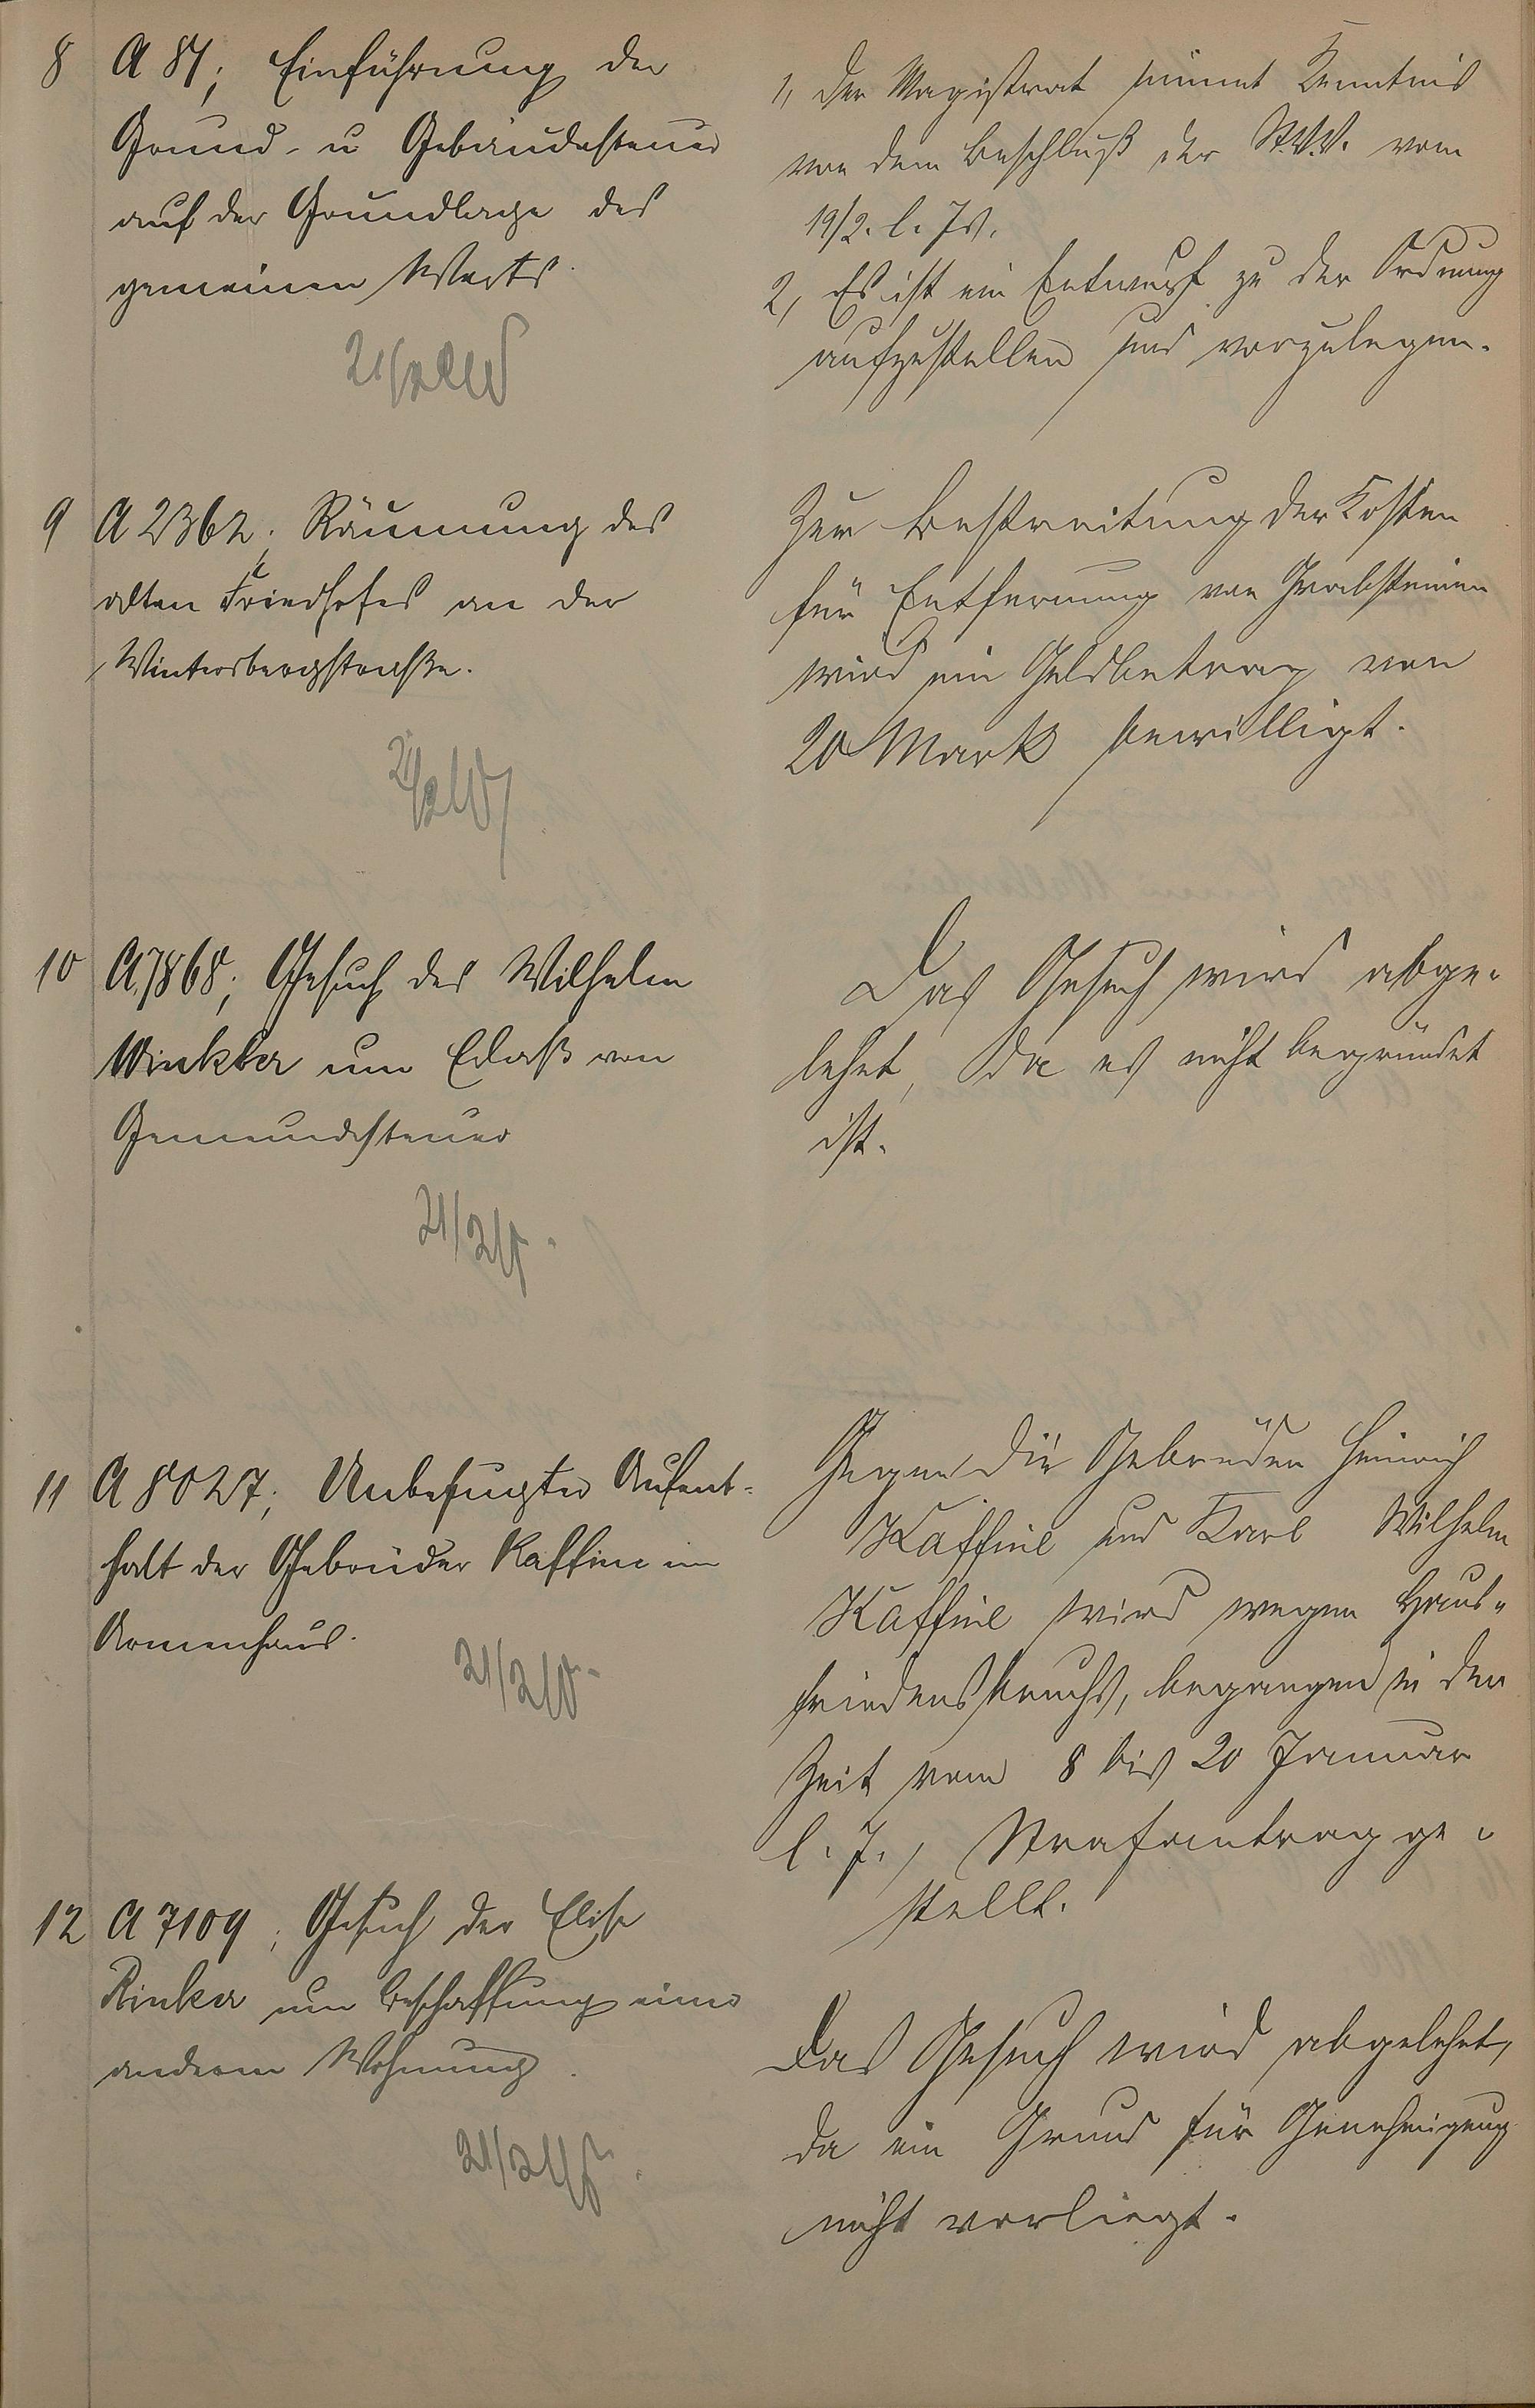 8 A 87; Einführung der
Grund- u Gebäudesteuer
auf der Grundlage des
gemeinen Werts.
1, Der Magistrat nimmt Kenntnis
von dem Beschluß der St.V.V. vom
19/2. l. Js.
2, Es ist ein Entwurf zu der Ordnung
aufzustellen und vorzulegen.
21/2
9 A 2362. Räumung des
alten Friedhofes an der
Wintersbergstraße.
Zur Bestreitung der Kosten
für Entfernung von Grabsteinen
wird ein Geldbetrag von
20 Mark bewilligt.
21/2
10 A 7868; Gesuch des Wilhelm
Winkler um Erlaß von
Gemeindesteuer
Das Gesuch wird abge-
lehnt, da es nicht begründet
ist.
21/2
11 A 8027; Unbefugter Aufent-
halt der Gebrüder Kaffine im
Armenhaus.
Gegen die Gebrüder Heinrich
Kaffine und Karl Wilhelm
Kaffine wird wegen Haus-
friedensbruchs, begangen in der
Zeit vom 8 bis 20 Januar
l. J., Strafantrag ge-
stellt.
21/2
12 A 7109; Gesuch der Elise
Rinker um Beschaffung einer
anderen Wohnung.
Das Gesuch wird abgelehnt,
da ein Grund für Genehmigung
nicht vorliegt.
21/2